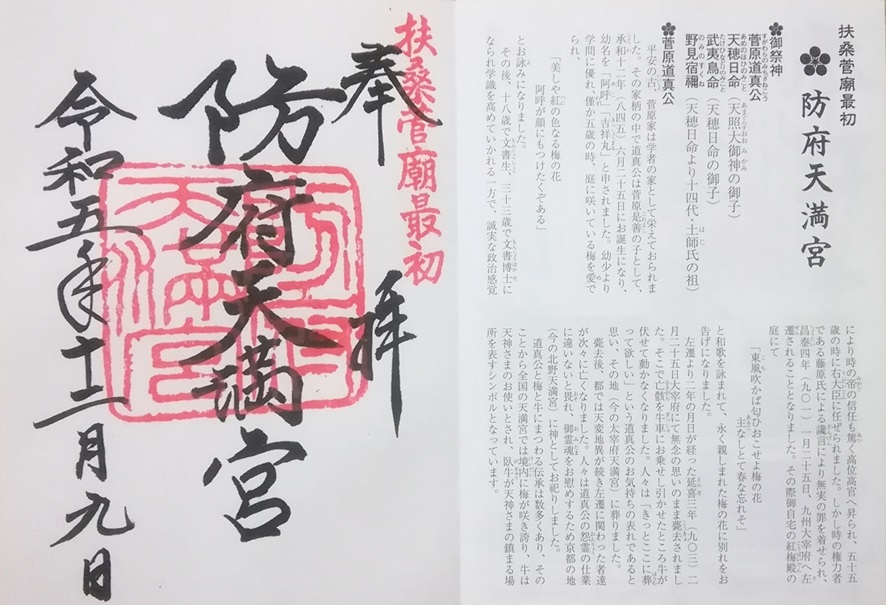 扶桑菅廟最初
奉拝
防府天満宮
令和五年十二月九日
扶桑菅廟最初
防府天満宮
御祭神
菅原道真公
天穂日命（天照大御神の御子）
武夷鳥命（天穂日命の御子）
野見宿禰（天穂日命より十四代、土師氏の祖）
菅原道真公
平安の古、菅原家は学者の家として栄えておられま
した。その家柄の中で道真公は菅原是善の子として、
承和十二年（八四五）六月二十五日にお誕生になり、
幼名を「阿呼」「吉祥丸」と申されました。幼少より
学問に優れ、僅か五歳の時、庭に咲いている梅を愛で
られ、
「美しや紅の色なる梅の花
阿呼が顔にもつけたくぞある」
とお詠みになりました。
その後、十八歳で文書生、三十三歳で文書博士に
なられ学識を高めていかれる一方で、誠実な政治感覚
により時の帝の信任も篤く高位高官へ昇られ、五十五
歳の時に右大臣に任ぜられました。しかし時の権力者
である藤原氏による讒言により無実の罪を着せられ、
昌泰四年（九〇一）一月二十五日、九州大宰府へ左
遷されることとなりました。その際御自宅の紅梅殿の
庭にて
「東風吹かば匂ひおこせよ梅の花
主なしとて春な忘れそ」
と和歌を詠まれて、永く親しまれた梅の花に別れをお
告げになりました。
左遷より二年の月日が経った延喜三年（九〇三）二
月二十五日大宰府にて無念の思いのまま薨去されまし
た。そこで亡骸を牛車にお乗せし引かせたところ牛が
伏せて動かなくなりました。人々は「きっとここに葬
って欲しい」という道真公のお気持ちの表れであると
思い、その地（今の太宰府天満宮）に葬りました。
薨去後、都では天変地異が続き左遷に関わった者達
が次々に亡くなりました。人々は道真公の怨霊の仕業
に違いないと畏れ、御霊魂をお慰めするため京都の地
（今の北野天満宮）に神としてお祀りしました。
道真公と梅と牛にまつわる伝承は数多くあり、その
ことから全国の天満宮では境内に梅が咲き誇り、牛は
天神さまのお使いとされ、臥牛が天神さまの鎮まる場
所を表すシンボルとなっています。